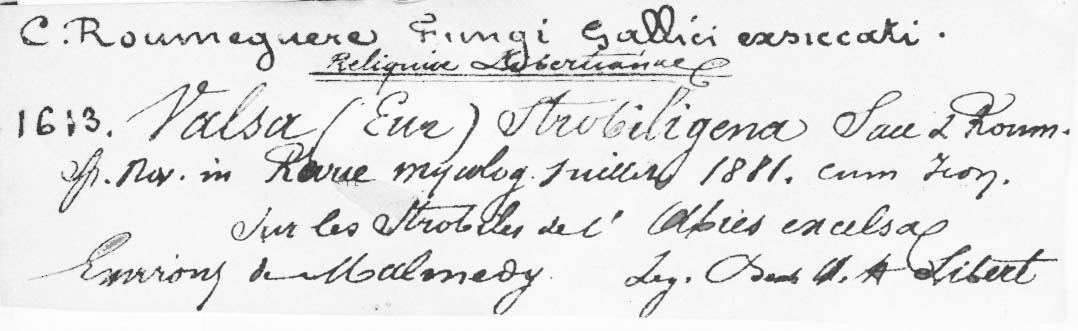 C. Roumeguere Fungi Gallici exsiccati.
Reliquiae Libertianae
1613. Valsa (Eur) Strobiligena Sacc & Roum.
Sp. Nov. in Revue mycolog. Juillet 1881. cum Icon.
Sur les Strobiles de l' Abies excelsa
Environs de Malmedy. Leg. M. A Libert